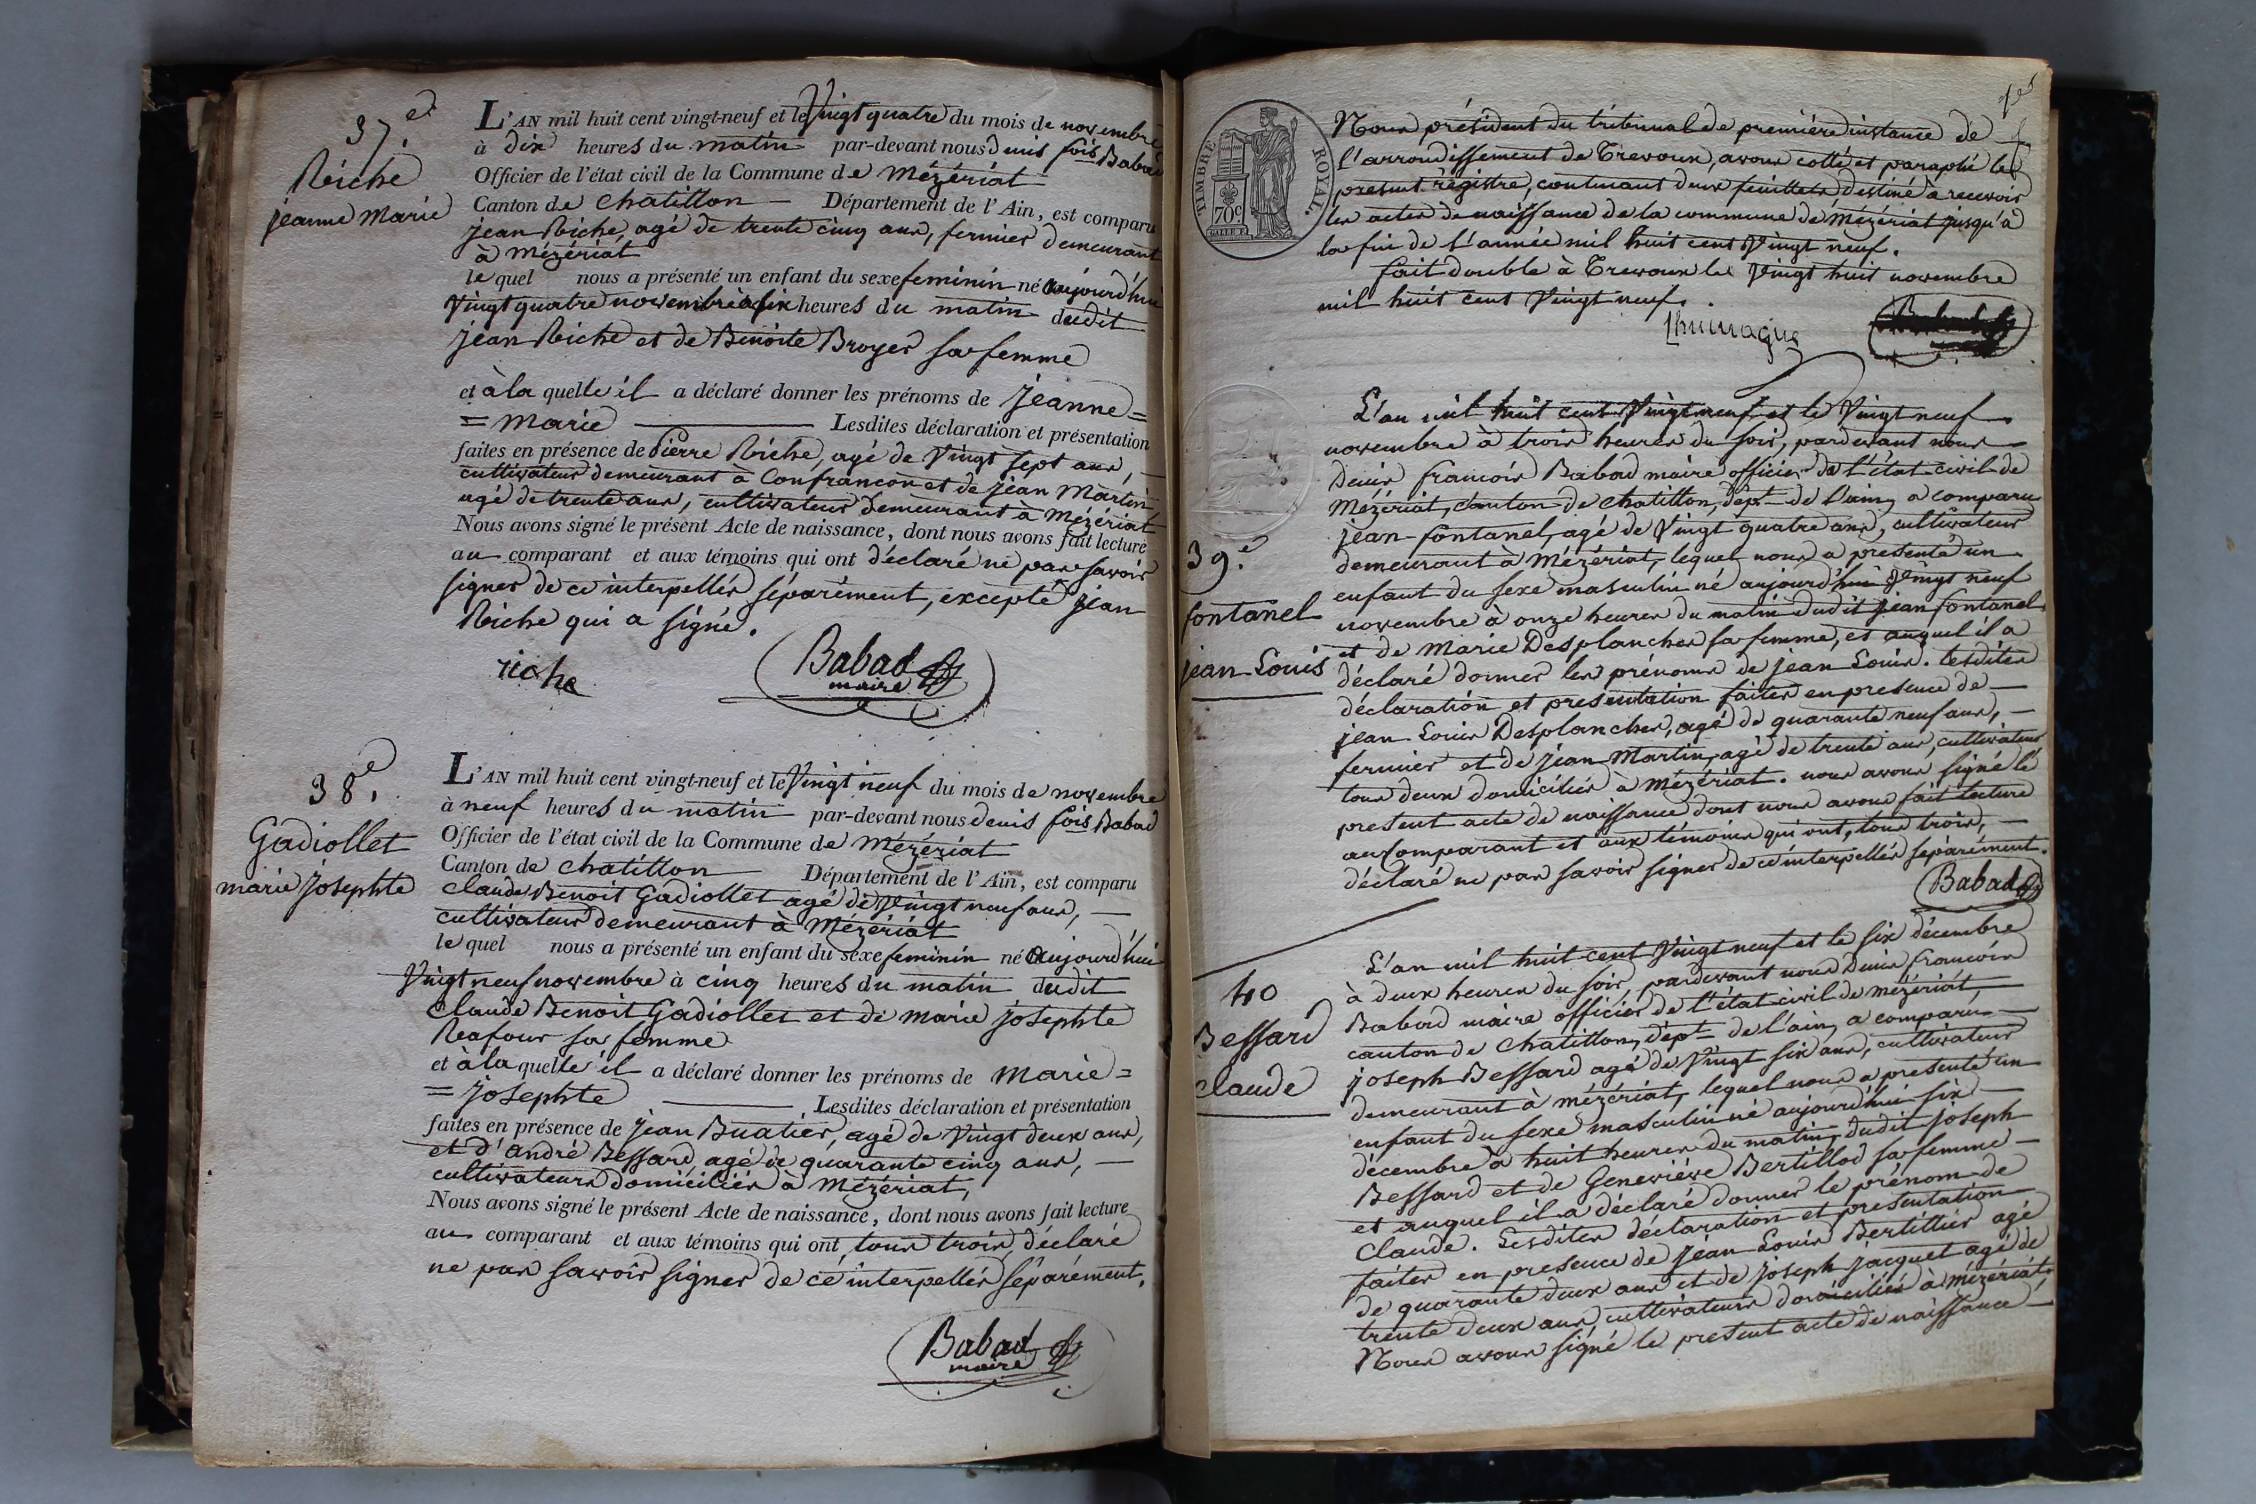 37.e
Riche
jeanne Marie
L'AN mil huit cent vingt-neuf et le Vingt quatre du mois de novembre
à dix heures du matin par-devant nous Denis fois Babad
Officier de l'état civil de la Commune de Mézériat
Canton de Chatillon Département de l'Ain, est comparu
jean Riche, agé de trente cinq ans, fermier demeurant
à Mézériat
le quel nous a présenté un enfant du sexe feminin né aujourd'hui
Vingt quatre novembre à six heures du matin dudit
jean Riche et de Benoite Broyer sa femme
et à la quelle il a déclaré donner les prénoms de jeanne=
= Marie Lesdites déclaration et présentation
faites en présence de Pierre Riche, agé de Vingt sept ans,
cultivateur demeurant à Confrancon et de jean Martin
agé de trente ans, cultivateur demeurant à Mézériat
Nous avons signé le présent Acte de naissance, dont nous avons fait lecture
au comparant et aux témoins qui ont déclaré ne pas savoir
signer de ce interpellés séparément, excepté jean
Riche qui a signé.
riche
Babad
maire
38.e
Gadiollet
marie josephte
L'AN mil huit cent vingt-neuf et le Vingt neuf du mois de novembre
à neuf heures du matin par-devant nous denis fois Babad
Officier de l'état civil de la Commune de Mézériat
Canton de Chatillon Département de l'Ain, est comparu
Claude Benoit Gadiollet agé de Vingt neuf ans,
cultivateur demeurant à Mézériat
le quel nous a présenté un enfant du sexe feminin né aujourd'hui
Vingt neuf novembre à cinq heures du matin dudit
Claude Benoit Gadiollet et de marie josephte
Reafour sa femme
et à la quelle il a déclaré donner les prénoms de marie=
= josephte Lesdites déclaration et présentation
faites en présence de jean Buatier, agé de Vingt deux ans,
et d'andré Bessard agé de quarante cinq ans,
cultivateurs domiciliés à Mézériat,
Nous avons signé le présent Acte de naissance, dont nous avons fait lecture
au comparant et aux témoins qui ont, tous trois, déclaré
ne pas savoir signer de ce interpellés séparément.
Babad
maire
TIMBRE ROYAL.
70c.
Nous président du tribunal de première instance de
l'arrondissement de Trevoux, avons cotté et paraphé le
present régistre, contenant deux feuillets destiné à recevoir
les actes de naissance de la commune de Mézériat jusqu'à
la fin de l'année mil huit cent Vingt neuf.
fait double à Trevoux le Vingt huit novembre
mil huit cent Vingt neuf.
39.e
fontanel
jean Louis
L'an mil huit cent Vingt neuf et le Vingt neuf
novembre à trois heures du soir, pardevant nous
Denis francois Babad maire officier de l'état civil de
Mézériat, canton de Chatillon, dépt de l'ain, a comparu
jean fontanel, agé de Vingt quatre ans, cultivateur
demeurant à Mézériat, lequel nous a presenté un
enfant du sexe masculin né aujourd'hui Vingt neuf
novembre à onze heures du matin dudit jean fontanel
et de Marie Desplanches sa femme, et auquel il a
déclaré donner les prénoms de jean Louis. Lesdites
déclaration et presentation faites en presence de
jean Louis Desplanches, agé de quarante neuf ans,
fermier et de jean Martin, agé de trente ans, cultivateur
tous deux domiciliés à Mézériat. nous avons signé le
present acte de naissance dont nous avons fait lecture
au comparant et aux témoins qui ont, tous trois,
déclaré ne pas savoir signer de ce interpellés séparément.
Babad
40
Bessard
Claude
L'an mil huit cent Vingt neuf et le six décembre
à deux heures du soir, pardevant nous Denis francois
Babad maire officier de l'état civil de Mézériat,
canton de Chatillon, dépt de l'ain, a comparu
joseph Bessard agé de Vingt six ans, cultivateur
demeurant à mézériat, lequel nous a presenté un
enfant du sexe masculin né aujourd'hui six
décembre à huit heures du matin, dudit joseph
Bessard et de Geneviéve Bertillod sa femme
et auquel il a déclaré donner le prénom de
Claude. Lesdites déclaration et presentation
faites en presence de jean Louis Bertillier agé
de quarante deux ans et de joseph jacquet agé de
trente deux ans, cultivateurs domiciliés à Mézériat.
Nous avons signé le present acte de naissance